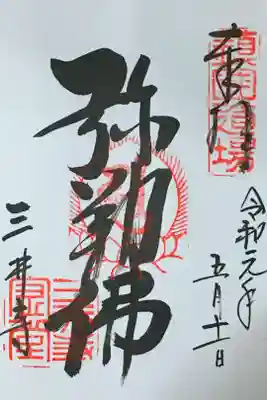 奉拝
令和元年
五月十一日
弥勒佛
三井寺